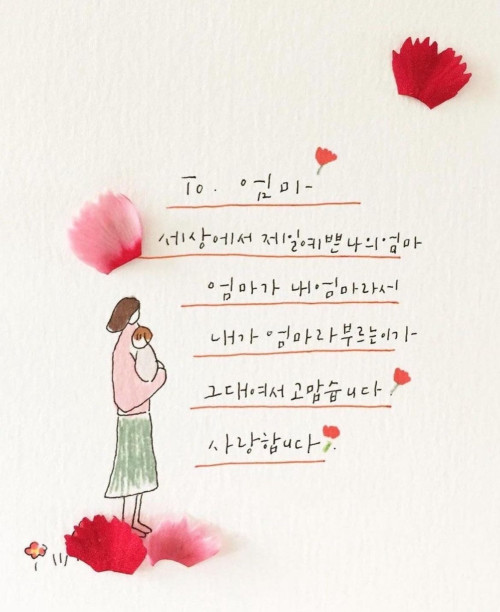 To. 엄마
세상에서 제일예쁜나의엄마
엄마가 내엄마라서
내가 엄마라부르는이가
그대여서 고맙습니다
사랑합니다.